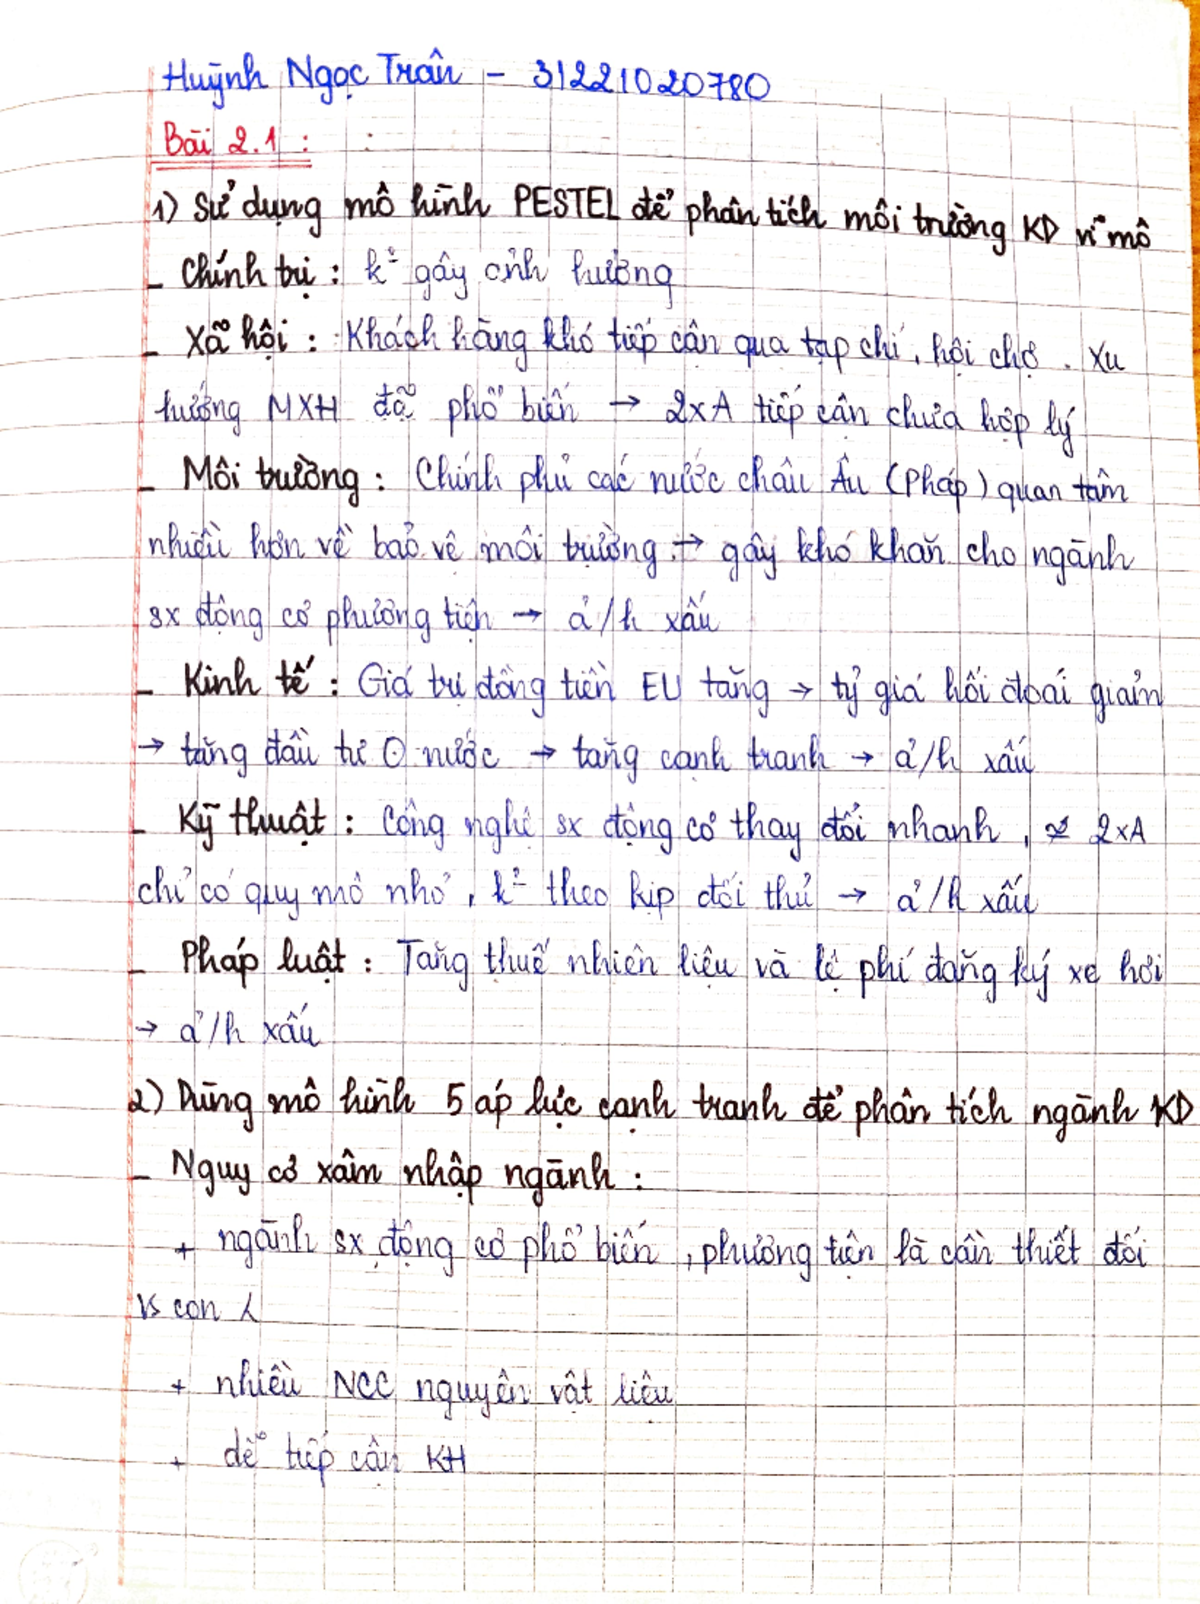 Huỳnh Ngọc Trân - 31221020780
Bài 2.1 :
1) Sử dụng mô hình PESTEL để phân tích môi trường KD vĩ mô
- Chính trị : k² gây ảnh hưởng
- Xã hội : Khách hàng khó tiếp cận qua tạp chí, hội chợ. Xu
hướng MXH đã phổ biến → 2xA tiếp cận chưa hợp lý
- Môi trường : Chính phủ các nước châu Âu (Pháp) quan tâm
nhiều hơn về bảo vệ môi trường → gây khó khăn cho ngành
sx động cơ phương tiện → ả/h xấu
- Kinh tế : Giá trị đồng tiền EU tăng → tỷ giá hối đoái giảm
→ tăng đầu tư O nước → tăng cạnh tranh → ả/h xấu
- Kỹ thuật : Công nghệ sx động cơ thay đổi nhanh, 2xA
chỉ có quy mô nhỏ, k² theo kịp đối thủ → ả/h xấu
- Pháp luật : Tăng thuế nhiên liệu và lệ phí đăng ký xe hơi
→ ả/h xấu
2) Dùng mô hình 5 áp lực cạnh tranh để phân tích ngành KD
- Nguy cơ xâm nhập ngành :
+ ngành sx động cơ phổ biến, phương tiện là cần thiết đối
vs con
+ nhiều NCC nguyên vật liệu
+ dễ tiếp cận KH